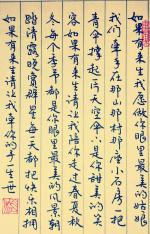 如果有来生我愿做你眼里最美的姑娘
我们牵手在那山那村那幢小石房一把
青伞撑起一片天空伞下是你甜美的笑
容如果有来生请让我陪你走过春夏秋
冬每个季节都是你眼里最美的风景朝
踏清露晚赏繁星每天都把快乐相拥
如果有来生请让我牵你的手一生一世